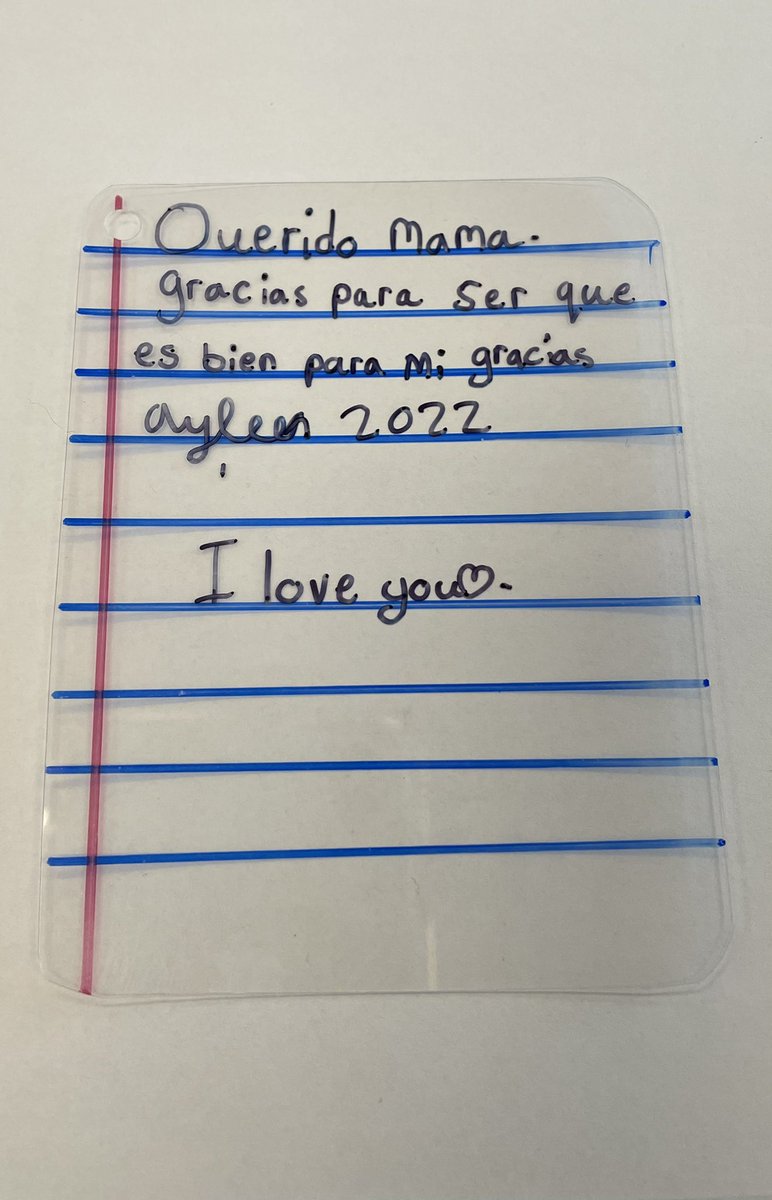 Querido Mama.
gracias para ser que
es bien para mi gracias
Ayleen 2022
I love you♡.